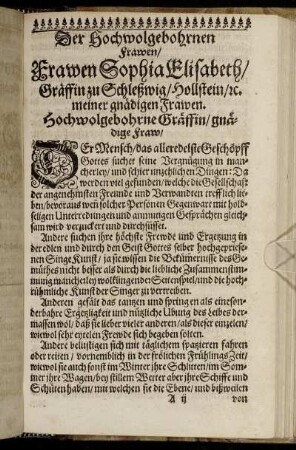 Der Hochwolgebohrnen
Frawen/
Frawen Sophia Elisabeth/
Gräffin zu Schleßwig/Hollstein/ꝛc.
meiner gnädigen Frawen.
Hochwolgebohrne Gräffin/gnä-
dige Fraw/
DEr Mensch/das alleredelste Geschöpff
Gottes suchet seine Vergnügung in man-
cherley/ und schier unzehlichen Dingen: Da
werden viel gefunden/welche die Gesellschafft
der angenehmsten Freunde und Verwandten trefflich lie-
ben/bevoraus wen solcher Personen Gegenwart mit hold-
seligen Unterredungen und anmutigen Gesprächen gleich-
sam wird verzuckert und durchsüsset.
Andre suchen ihre höchste Frewde und Ergetzung in
der edlen und durch den Geist Gottes selber hochgepriese-
nen Singe Kunst/ ja sie wissen die Bekümernisse des Ge-
müthes nicht besser als durch die liebliche Zusammenstim-
mung mancherley wolklingender Seitenspiel/und die hoch-
rühmliche Kunst der Singer zu vertreiben.
Anderen gefält das tantzen und springen als eine son-
derbahre Ergezligkeit und nützliche Übung des Leibes der-
massen wol/ daß sie lieber vieler anderen/als dieser einzelen/
wiewol sehr eytelen Frewde sich begeben solten.
Andere belüstigen sich mit täglichem spazieren fahren
oder reiten/ vornemblich in der frölichen Frühlings Zeit/
wiewol sie auch sonst im Winter ihre Schlitten/im Som-
mer ihre Wagen/bey stillem Wetter aber ihre Schiffe und
Schüten haben/ mit welchen sie die Ebene/ und bißweilen
A ij von